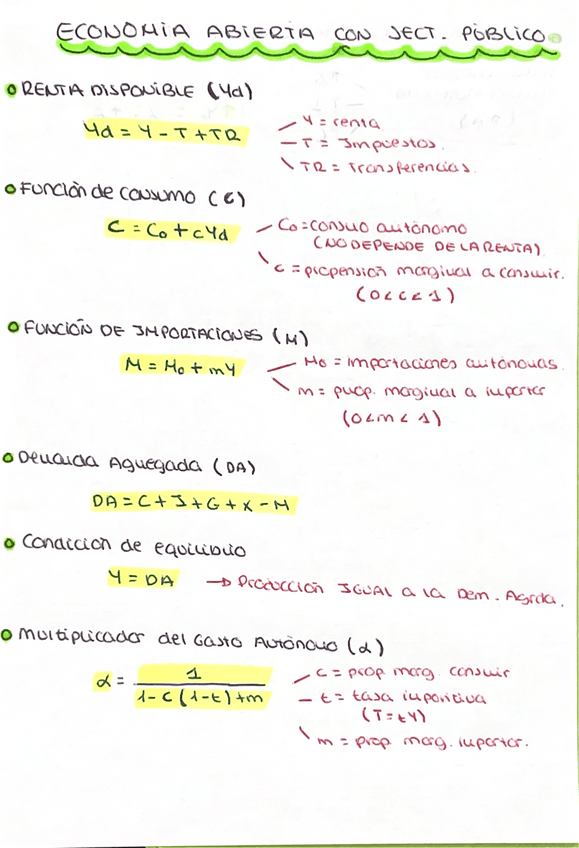 ECONOMÍA ABIERTA CON SECT. PÚBLICO
RENTA DISPONIBLE (Yd)
Yd = Y - T + TR
Y = renta
T = Impuestos.
TR = Transferencias.
Función de consumo (C)
C = C₀ + cYd
C₀ = consuo autónomo
(NO DEPENDE DE LA RENTA)
c = propensión marginal a consumir.
(0 < c < 1)
FUNCIÓN DE IMPORTACIONES (M)
M = M₀ + mY
M₀ = importaciones autónomas.
m = prop. marginal a importar
(0 < m < 1)
Demanda Agregada (DA)
DA = C + I + G + X - M
Condición de equilibrio
Y = DA → Producción IGUAL a la Dem. Agrda.
Multiplicador del Gasto Autónomo (α)
α = 1 / 1 - c (1 - t) + m
c = prop marg. consuir
t = tasa impositiva
(T = tY)
m = prop marg. importar.